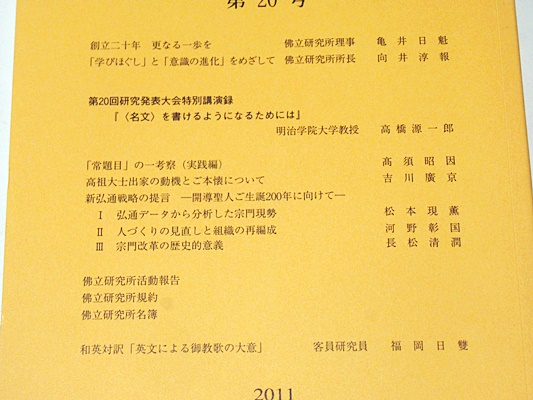 第20号
創立二十年 更なる一歩を 佛立研究所理事 亀井日魁
「学びほぐし」と「意識の進化」をめざして 佛立研究所所長 向井淳報
第20回研究発表大会特別講演録
『〈名文〉を書けるようになるためには』
明治学院大学教授 高橋源一郎
「常題目」の一考察（実践編） 髙須昭因
高祖大士出家の動機とご本懐について 吉川廣京
新弘通戦略の提言 ―開導聖人ご生誕200年に向けて―
Ⅰ 弘通データから分析した宗門現勢 松本現薫
Ⅱ 人づくりの見直しと組織の再編成 河野彰国
Ⅲ 宗門改革の歴史的意義 長松清潤
佛立研究所活動報告
佛立研究所規約
佛立研究所名簿
和英対訳「英文による御教歌の大意」 客員研究員 福岡日雙
2011